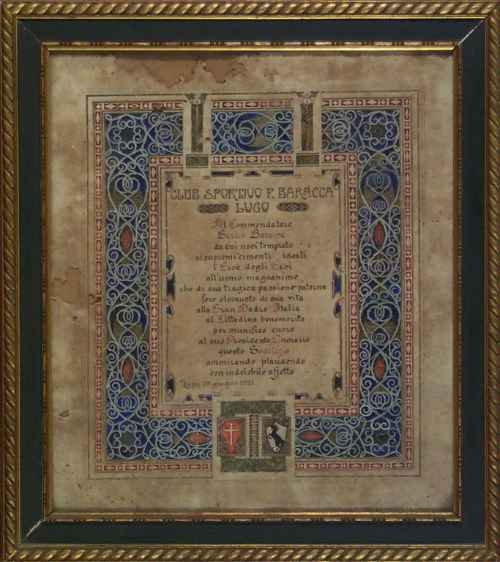 CLUB SPORTIVO F. BARACCA
LUGO
Al Commendatore
Baracca
da cui uscì temprato
ai supremi cimenti ideali
l'Eroe degli Eroi
all'uomo magnanimo
che di sua tragica passione paterna
fece olocausto di sua vita
alla Gran Madre Italia
al Cittadino benemerito
per munifico cuore
al suo Presidente Onorario
questo Sodalizio
ammirando plaudendo
con indelebile affetto
Lugo giugno 1921